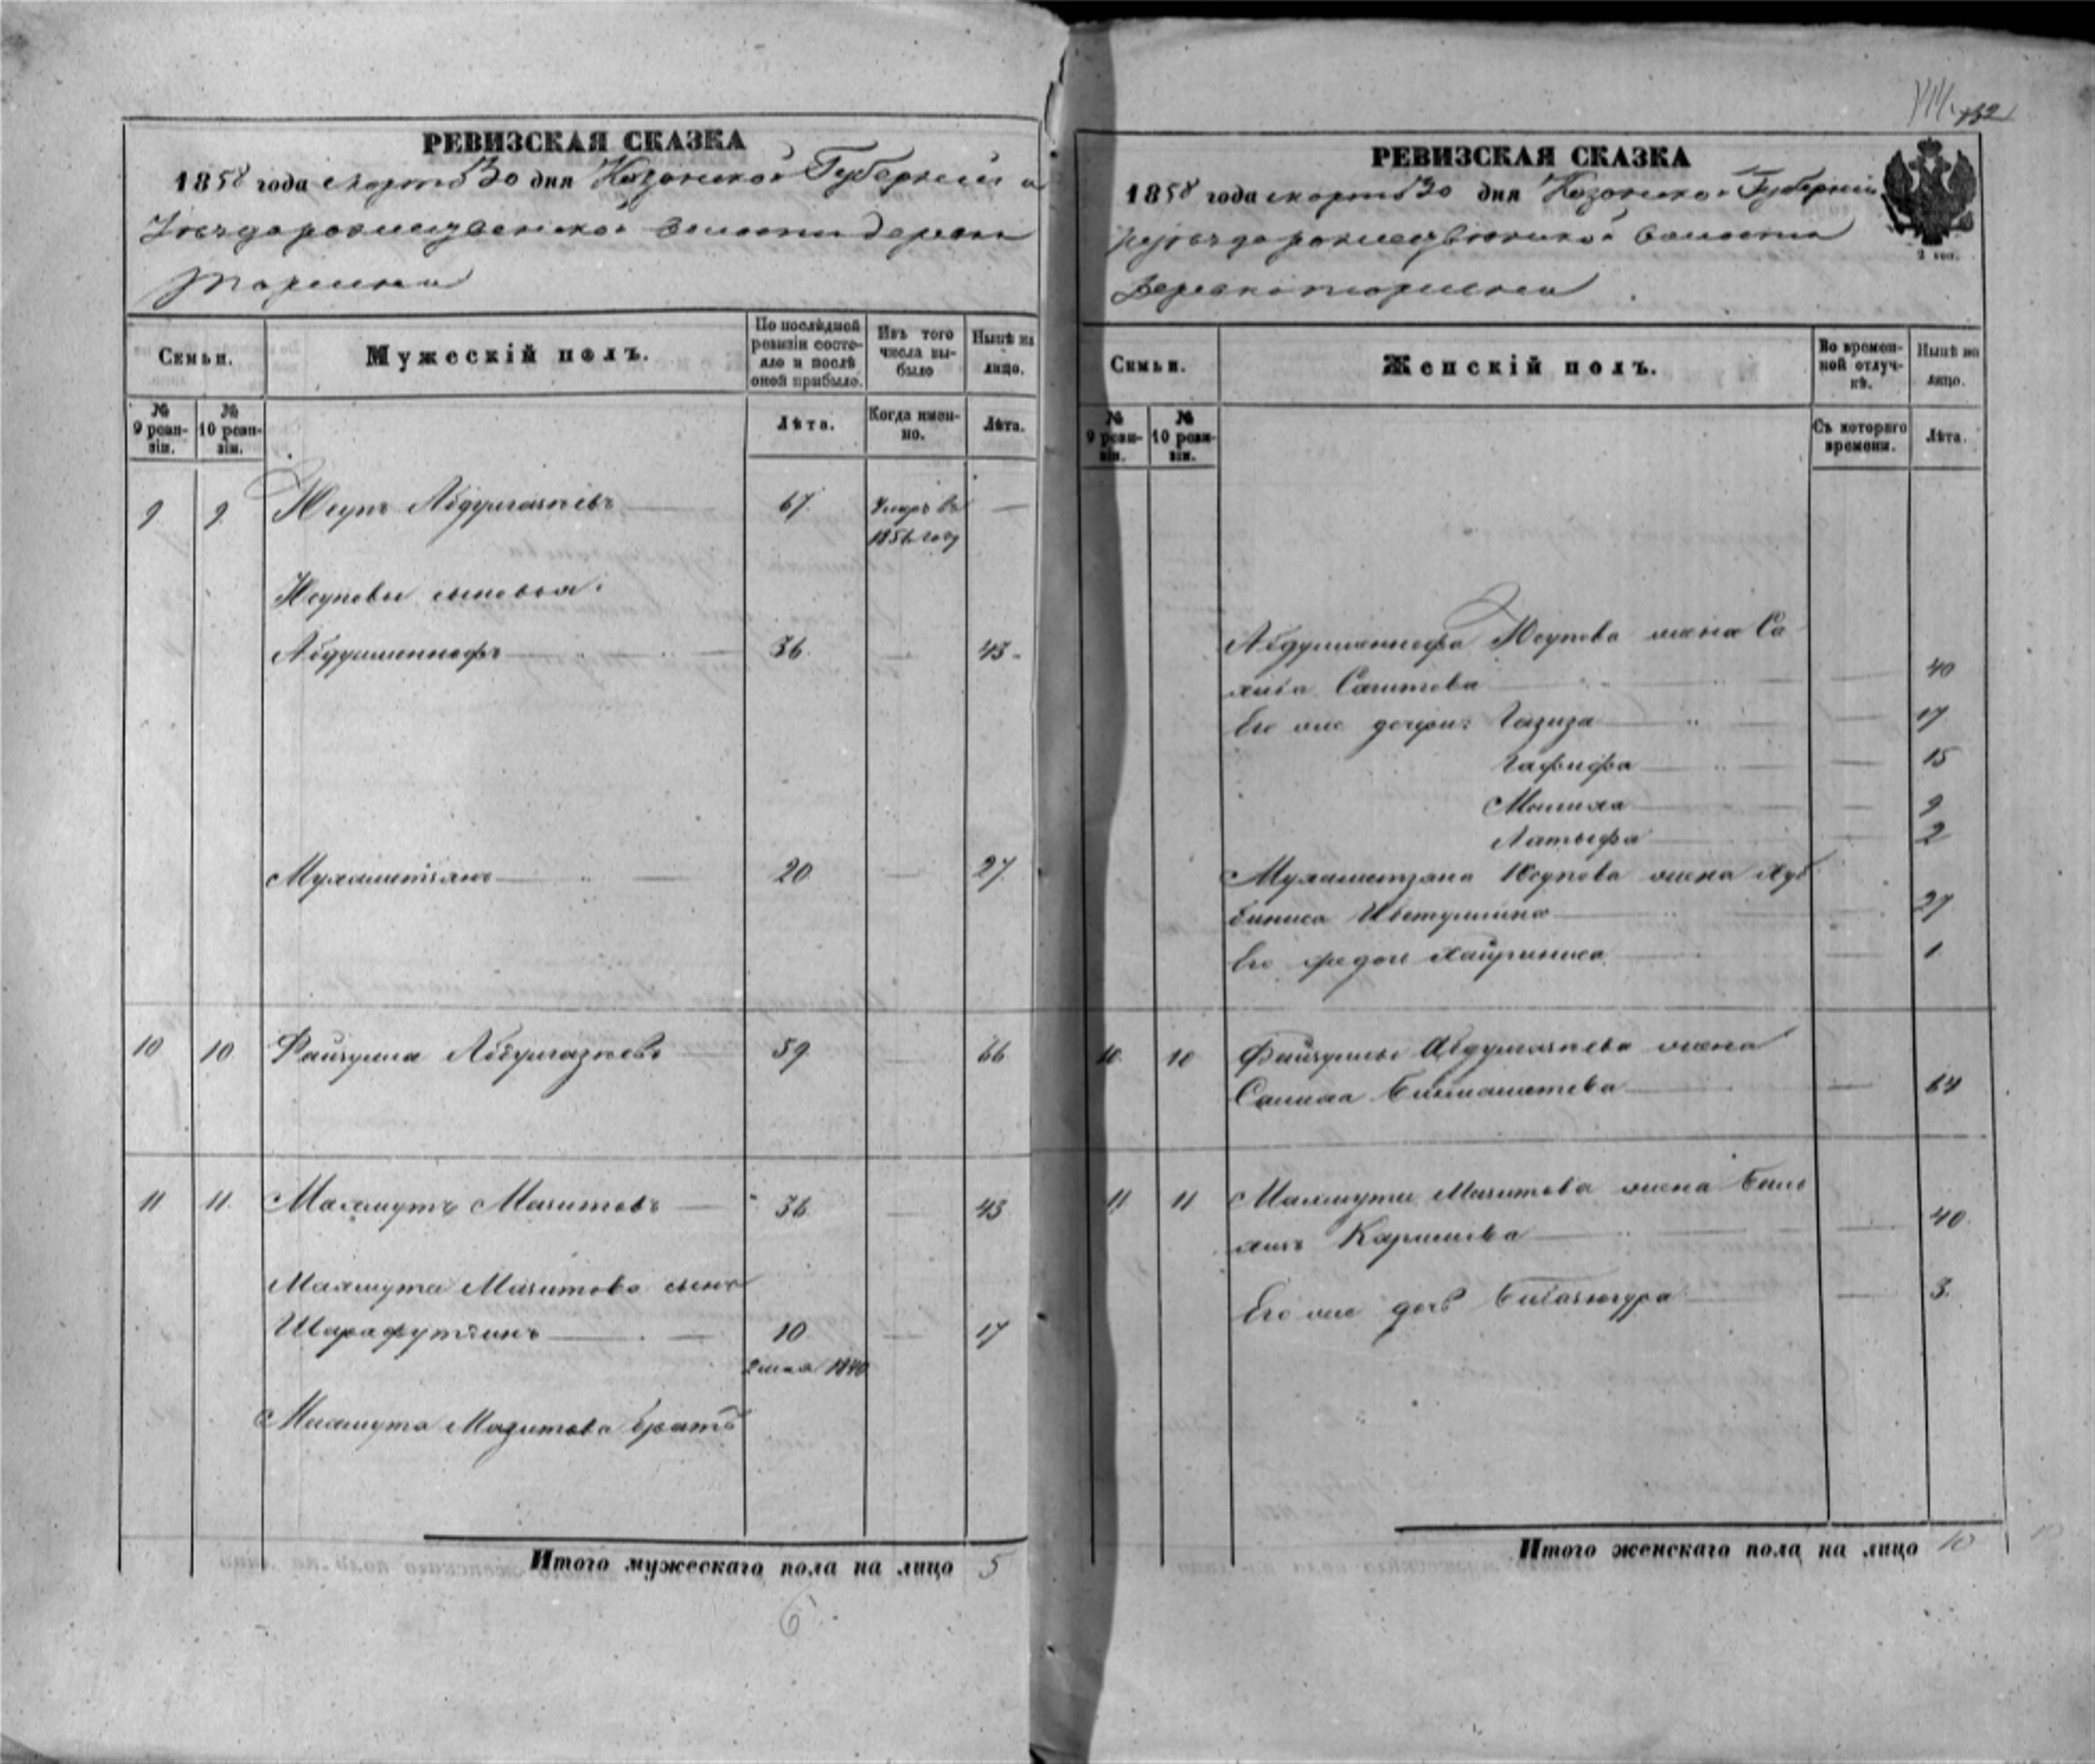 РЕВИЗСКАЯ СКАЗКА
1858 года марта 30 дня Казанской Губерніи и
Уезда рождественской волости деревни
Семьи.
Мужескій полъ.
По послѣдней ревизіи состояло и послѣ оной прибыло.
Изъ того числа выбыло
Нынѣ на лицо.
№ 9 ревизіи.
№ 10 ревизіи.
Лѣта.
Когда именно.
Лѣта.
9 9 Юсупъ Абдулгазіевъ 67 Умеръ въ —
1856 году
Юсуповы сыновья:
Абдулманнафъ 36 — 43
Мухаметзянъ 20 — 27
10 10 Файзулла Абдулгазіевъ 59 66
11 11 Махмутъ Мазитовъ 36 — 43
Махмута Мазитова сынъ
Шарафутдинъ 10 — 17
1840
Махмута Мазитова братъ
Итого мужескаго пола на лицо 5
6
РЕВИЗСКАЯ СКАЗКА
1858 года марта 30 дня Казанской Губерніи
и уезда рождественской волости
2 коп.
Семьи.
Женскій полъ.
Во временной отлучкѣ.
Нынѣ на лицо.
№ 9 ревизіи.
№ 10 ревизіи.
Съ котораго времени.
Лѣта.
Абдулманнафа Юсупова жена Са
хиба Сагитова — 40
Его же дочери: Газиза — 17
Гафифа — 15
Малиха — 9
Латыфа — 2
Мухаметзяна Юсупова жена Хуб
биниса — 27
Его же дочь Хайриниса — 1
10 10 Файзуллы Абдулгазіева жена
Салиха Бикмаметева — 64
11 11 Махмута Мазитова жена
Каримова — 40
Его же дочь — 3
Итого женскаго пола на лицо 10